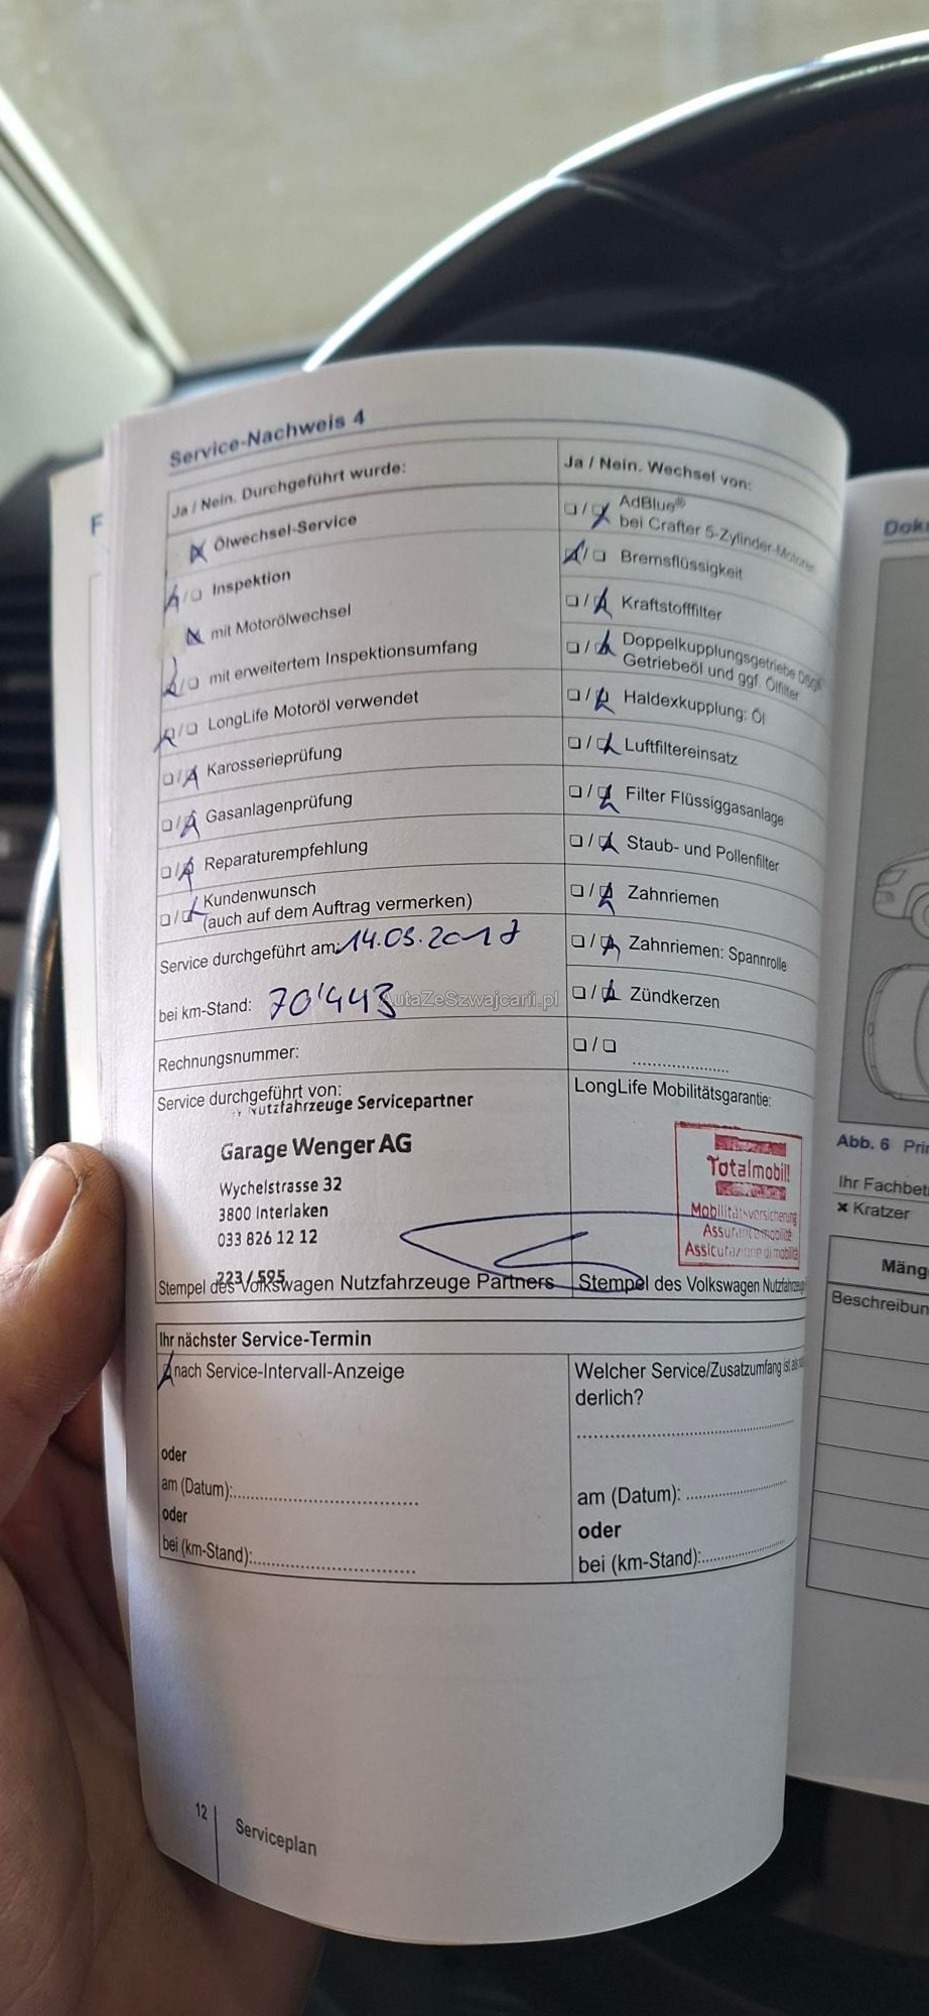 Service-Nachweis 4
Ja / Nein. Durchgeführt wurde:
Ölwechsel-Service
Inspektion
mit Motorölwechsel
mit erweitertem Inspektionsumfang
LongLife Motoröl verwendet
Karosserieprüfung
Gasanlagenprüfung
Reparaturempfehlung
Kundenwunsch
(auch auf dem Auftrag vermerken)
Service durchgeführt am: 14.03.2017
bei km-Stand: 70'443
Rechnungsnummer:
Service durchgeführt von:
Nutzfahrzeuge Servicepartner
Garage Wenger AG
Wychelstrasse 32
3800 Interlaken
033 826 12 12
223 / 595
Stempel des Volkswagen Nutzfahrzeuge Partners
Ja / Nein. Wechsel von:
AdBlue®
bei Crafter 5-Zylinder-Motoren
Bremsflüssigkeit
Kraftstofffilter
Doppelkupplungsgetriebe DSG®
Getriebeöl und ggf. Ölfilter
Haldexkupplung: Öl
Luftfiltereinsatz
Filter Flüssiggasanlage
Staub- und Pollenfilter
Zahnriemen
Zahnriemen: Spannrolle
Zündkerzen
LongLife Mobilitätsgarantie:
Totalmobil!
Mobilitätsversicherung
Assurance mobilité
Assicurazione di mobilità
Stempel des Volkswagen Nutzfahrzeug
AutaZeSzwajcarii.pl
Ihr nächster Service-Termin
nach Service-Intervall-Anzeige
oder
am (Datum):
oder
bei (km-Stand):
Welcher Service/Zusatzumfang ist
derlich?
am (Datum):
oder
bei (km-Stand):
12
Serviceplan
F
Dok
Abb. 6 Pri
Ihr Fachbet
× Kratzer
Mäng
Beschreibun